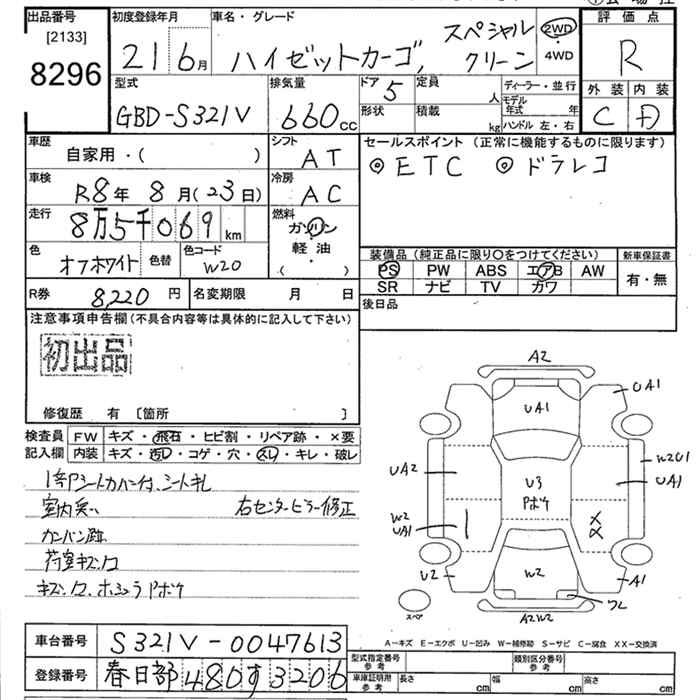 出品番号 初度登録年月 車名・グレード 評価点
[2133]
8296
21 6月 ハイゼットカーゴ, スペシャル
クリーン
2WD
・
4WD
R
型式 排気量 ドア 定員 ディーラー・並行 外装 内装
GBD-S321V 660cc 5 人
形状 積載 kg
モデル年式 年
ハンドル 左・右
C D
車歴 シフト セールスポイント (正常に機能するものに限ります)
自家用・( ) AT ◎ETC ◎ドラレコ
車検 冷房
R8年 8月(23日) AC
走行 燃料
8万5千069km ガソリン
軽油
( )
色 オフホワイト 色替 色コード W20
装備品(純正品に限り〇をつけてください) 新車保証書
PS PW ABS エアB AW 有・無
SR ナビ TV カワ
R券 8,220円 名変期限 月 日 後日品
注意事項申告欄(不具合内容等は具体的に記入して下さい)
初出品
修復歴 有 〔箇所 〕
検査員 FW キズ・飛石・ヒビ割・リペア跡・×要
記入欄 内装 キズ・汚レ・コゲ・穴・スレ・キレ・破レ
室内臭い 右センターピラー修正
カンバン跡
荷室キズ凹
A2
UA1 UA1
UA2 U3 W2U1
アボケ UA1
W2
UA1 X
X
U2 W2 A1
スペ A2W2
A-キズ E-エクボ U-凹み W-補修跡 S-サビ C-腐食 XX-交換済
車台番号 S321V-0047613
登録番号 春日部 480す3206
型式指定番号 参考 類別区分番号 参考
車庫証明用 参考 長さ cm 幅 cm 高さ cm